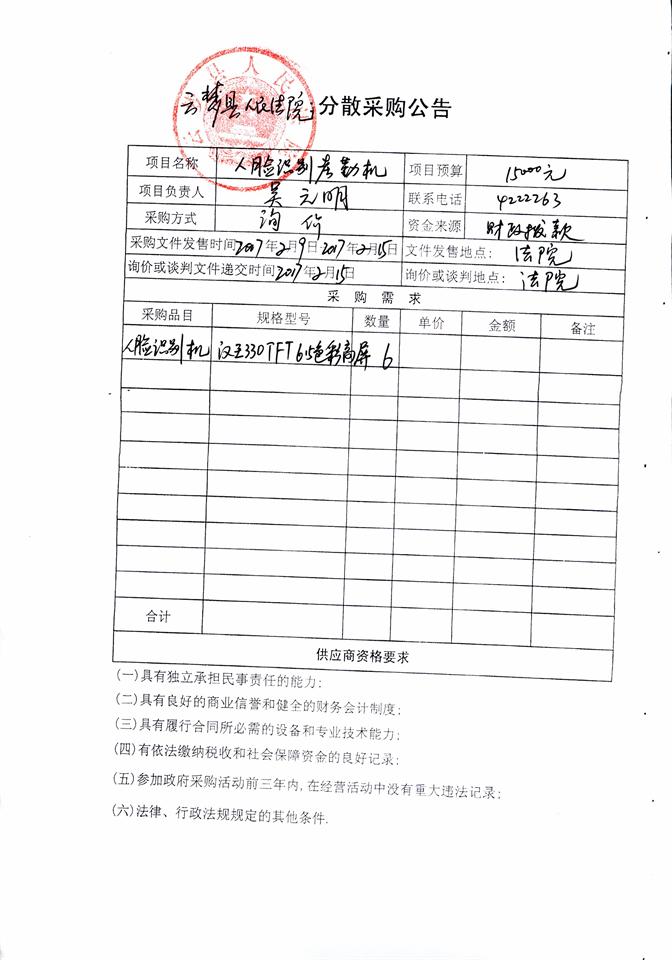 云梦县人民法院分散采购公告
项目名称 人脸识别考勤机 项目预算 15000元
项目负责人 吴元明 联系电话 4222263
采购方式 询价 资金来源 财政拨款
采购文件发售时间2017年2月9日2017年2月15日 文件发售地点: 法院
询价或谈判文件递交时间2017年2月15日 询价或谈判地点: 法院
采购需求
采购品目 规格型号 数量 单价 金额 备注
人脸识别机 汉王330TFT 彩商屏 6
合计
供应商资格要求
(一)具有独立承担民事责任的能力;
(二)具有良好的商业信誉和健全的财务会计制度;
(三)具有履行合同所必需的设备和专业技术能力;
(四)有依法缴纳税收和社会保障资金的良好记录;
(五)参加政府采购活动前三年内,在经营活动中没有重大违法记录;
(六)法律、行政法规规定的其他条件.